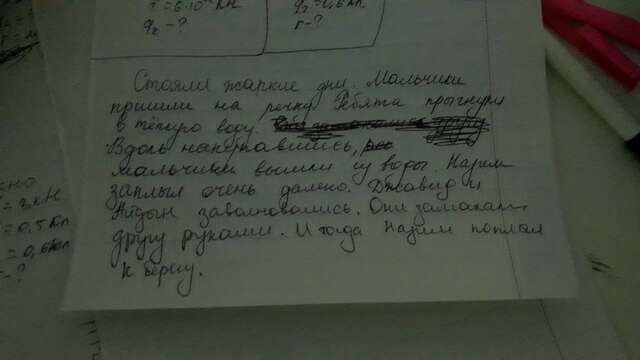 q₂ - ?
r - ?
Стояли жаркие дни. Мальчики
пришли на речку. Ребята прыгнули
в тёплую воду.
Вдоль накупавшись,
мальчики вышли из воды. Назим
заплыл очень далеко. Джавид и
Айдын заволновались. Они замахали
другу руками. И тогда Назим поплыл
к берегу.
= 0,5 Кл
- ?